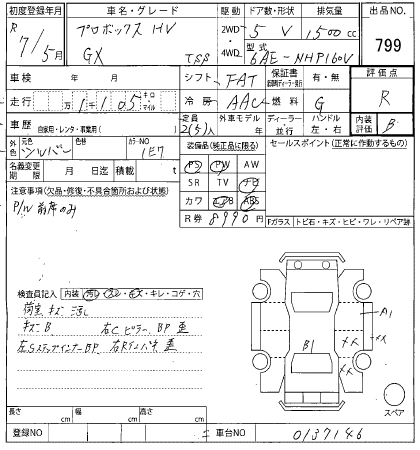 初度登録年月 車名・グレード 駆動 ドア数・形状 排気量 出品NO.
R 7/5月 プロボックス HV GX TSS 2WD 4WD 5 V 1500 cc 799
型式 6AE-NHP160V
車検 年 月 シフト FAT 保証書 有・無 評価点
走行 万 1千105 キロ マイル 冷房 AAC 燃料 G R
車歴 自家用・レンタ・事業用( ) 定員 2(5)人 外車モデル 年 ディーラー・並行 ハンドル 左・右 内装評価 B
外色 元色 シルバー 色替 カラーNO 1E7 装備品(純正品に限る) セールスポイント(正常に作動するもの)
名義変更期限 月 日迄 積載 t PS PW AW
注意事項(欠品・修復・不具合箇所および状態) SR TV ナビ
P/W 前席のみ カワ エアB ABS
R券 8990円 Fガラス トビ石・キズ・ヒビ・ワレ・リペア跡
検査員記入 内装 汚レ・スレ・キズ・キレ・コゲ・穴
荷室 キズ 汚レ
キズ B 右Cピラー BP 歪
左SステップインナーBP 右Rインパネ 歪
A1
B1
メメ
メメ
メメ
スペア
長さ cm 幅 cm 高さ cm
登録NO 車台NO 0137146